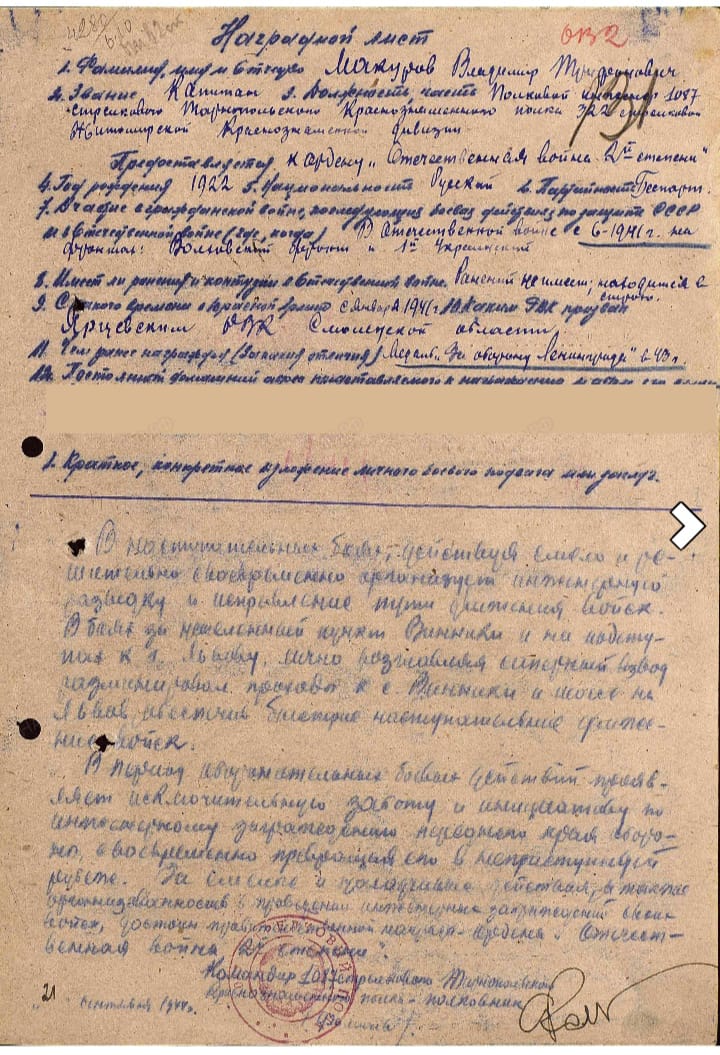 Наградной лист
1. Фамилия, имя и отчество Макуров Владимир
2. Звание Капитан 3. Должность, часть Полковой инженер 1087
стрелкового Тарнопольского Краснознаменного полка 322 стрелковой
Житомирской Краснознаменной дивизии
Представляется к ордену „Отечественная война 2й степени"
4. Год рождения 1922 5. Национальность Русский 6. Партийность Беспарт.
7. Участие в гражданской войне, последующих боевых действиях по защите СССР
и в Отечественной войне (где, когда) В Отечественной войне с 6-1941 г. на
фронтах: Волховский фронт и 1й Украинский
8. Имеет ли ранения и контузии в Отечественной войне. Ранений не имеет, находится в
строю.
9. С какого времени в Красной армии с января 1941 г. 10. Каким РВК призван
Ярцевским РВК Смоленской области
11. Чем ранее награжден (За какие отличия) Медаль „За оборону Ленинграда" в 43 г.
12. Постоянный домашний адрес представляемого к награждению и адрес его
1. Краткое, конкретное изложение личного боевого подвига или заслуг.
В наступательных боях, действуя смело и ре-
шительно своевременно организует инженерную
разведку и исправление пути движения войск.
В боях за населенный пункт Винники и на подсту-
пах к г. Львову, лично возглавляя саперный взвод
разминировал проходы к с. Винники и шоссе на
Львов, обеспечив быстрое наступательное движе-
ние войск.
В период оборонительных боевых действий прояв-
ляет исключительную заботу и инициативу по
инженерному заграждению переднего края оборо-
ны, своевременно превращая его в неприступный
рубеж. За смелые и действия, а также
организованность в проведении инженерных заграждений своих
войск, достоин правительственной награды - ордена „Отечест-
венная война 2й степени".
Командир 1087 стрелкового Тарнопольского
Краснознаменного полка - полковник
21 сентября 1944 г.